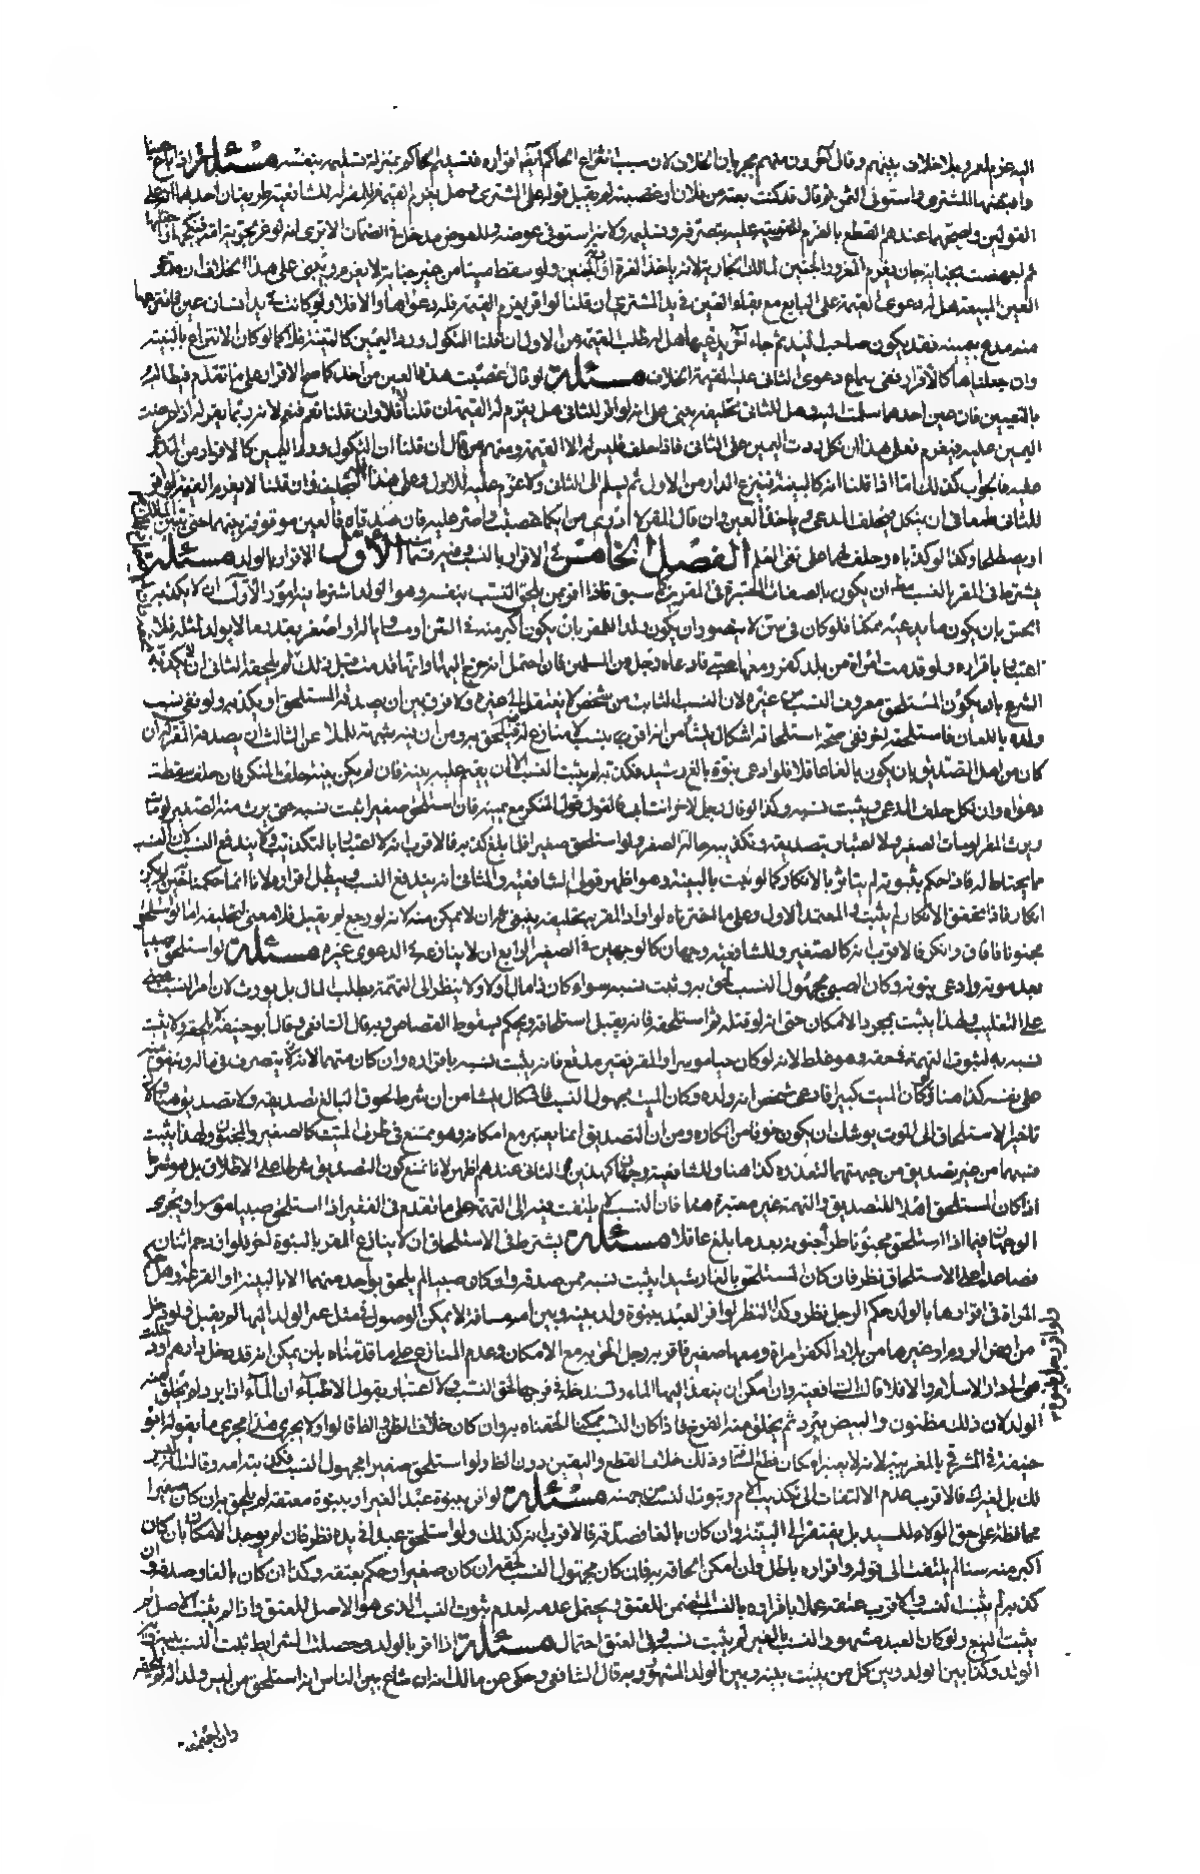 اليه غرم لعمرو بلا خلاف بينهم وقال آخرون منهم بجريان الخلاف لان سبب انتزاع الحاكم ايضا اقراره فتسليم الحاكم بمنزلة تسليمه بنفسه مسئلة اذا باع عينا
واقبضها المشتري واستوفى الثمن ثم قال قد كنت بعته من فلان او غصبته لم يقبل قوله على المشتري وهل يغرم القيمة للمقر له للشافعية طريقان احدهما انه على
القولين واصحهما عندهم القطع بالغرم لتفويته عليه بتصرفه وتسليمه ولانه استوفى عوضه وللعوض مدخل في الضمان الا ترى انه لو غر بحرية امة فنكحها
ثم اجهضت بجناية جان يغرم المغرور الجنين لمالك الجارية لانه ياخذ الغرة ولو سقط ميتا من غير جناية لا يغرم ويبنى على هذا الخلاف ان مدعي
العين المبيعة هل له دعوى القيمة على البايع مع بقاء العين في يد المشتري ان قلنا لو اقر يغرم القيمة فله دعواها والا فلا ولو كانت في يد انسان عين فانتزعها
منه مدع بيمينه بعد نكول صاحب اليد ثم جاء آخر يدعيها هل له طلب القيمة من الاول ان قلنا النكول ورد اليمين كالبينة فلا كما لو كان الانتزاع بالبينة
وان جعلناها كالاقرار ففي سماع دعوى الثاني عليه القيمة الخلاف مسئلة لو قال غصبت هذه العين من احدكما صح الاقرار على ما تقدم فيطالب
بالتعيين فان عين احدهما سلمت اليه وهل للثاني تحليفه يبنى على انه لو اقر للثاني هل يغرم له القيمة ان قلنا لا فلا وان قلنا نعم فنعم لانه ربما يقر له اذا عرضت
اليمين عليه فيغرم فعلى هذا ان نكل ردت اليمين على الثاني فاذا حلف فليس له الا القيمة ومنهم من قال ان قلنا ان النكول ورد اليمين كالاقرار من المدعى
عليه فالجواب كذلك اما اذا قلنا انه كالبينة فتنزع الدار من الاول ثم يسلم الى الثاني ولا غرم عليه للاول وعلى هذا فله التحليف وان قلنا لا يغرم القيمة لو اقر
للثاني طمعا في ان ينكل فيحلف المدعي وياخذ العين وان قال المقر لا ادري من ايكما غصبت واصر عليه فان صدقاه فالعين موقوفة بينهما حتى يتبين
او يصطلحا وكذا لو كذباه وحلف لهما على نفي العلم الفصل الخامس في الاقرار بالنسب وفيه قسمان الاول الاقرار بالولد مسئلة
يشترط في المقر بالنسب مطلقا ان يكون بالصفات المعتبرة في المقرين كما سبق فاذا اقر بمن يلحق النسب بنفسه وهو الولد اشترط فيه امور الاول ان لا يكذبه
الحس بان يكون ما يدعيه ممكنا فلو كان في سن لا يتصور ان يكون ولدا للمقر بان يكون اكبر منه في السن او مساويا له او اصغر بقدر ما لا يولد لمثله فلا
اعتبار باقراره ولو قدمت امراة من بلد كفر ومعها صبي فادعاه رجل من المسلمين فان احتمل انه خرج اليها او انها قدمت قبل ذلك لم يلحقه الثاني ان لا يكذبه
الشرع بان يكون المستلحق معروف النسب من غيره لان النسب الثابت من شخص لا ينتقل الى غيره ولا فرق بين ان يصدقه المستلحق او يكذبه ولو نفى نسب
ولده باللعان فاستلحقه آخر ففي صحة استلحاقه اشكال ينشأ من انه اقر بنسب لا منازع له فيه فيلحق به ومن ان فيه شبهة للملاعن الثالث ان يصدقه المقر به ان
كان من اهل التصديق بان يكون بالغا عاقلا فلو ادعى بنوة بالغ رشيد فكذبه لم يثبت النسب الا ان يقيم عليه بينة فان لم يكن بينة حلف المنكر فان حلف سقطت
دعواه وان نكل حلف المدعي ويثبت نسبه وكذا لو قال رجل لآخر انت ابي فالقول قول المنكر مع يمينه فان استلحق صغيرا ثبت نسبه حتى يرث منه الصغير لو مات
ويرث المقر لو مات الصغير ولا اعتبار بتصديقه وتكذيبه حالة الصغر ولو استلحق صغيرا فلما بلغ كذبه فالاقرب انه لا اعتبار بالتكذيب ولا يندفع النسب لان النسب
مما يحتاط له فاذا حكم بثبوته لم يتاثر بالانكار كما لو ثبت بالبينة وهو اظهر قولي الشافعية والثاني انه يندفع النسب ويبطل اقراره لانا انما حكمنا
انكاره فاذا تحقق الانكار لم يثبت والمعتمد الاول وعلى ما اخترناه لو اراد المقر به تحليفه ينبغي ان لا يمكن منه لانه لو رجع لم يقبل فلا معنى لتحليفه اما لو استلحق
مجنونا فافاق وانكر فالاقرب انه كالصغير وللشافعية وجهان كالوجهين في الصغير الرابع ان لا ينازعه في الدعوى غيره مسئلة لو استلحق صبيا
بعد موته وادعى بنوته وكان الصبي مجهول النسب لحق به وثبت نسبه سواء كان ذا مال او لا ولا ينظر الى التهمة بطلب المال بل يورث لان امر النسب مبني
على التغليب ولهذا يثبت بمجرد الامكان حتى انه لو قتله ثم استلحقه فانه يقبل استلحاقه ويحكم بسقوط القصاص وبه قال الشافعي وقال ابو حنيفة لا يلحقه ولا يثبت
نسبه به لثبوت التهمة في حقه وهو غلط لانه لو كان حيا موسرا والمقر فقير مدقع فانه يثبت نسبه باقراره وان كان متهما لانه يتصرف في ماله وينفق منه
على نفسه كذا هنا ولو كان الميت كبيرا فادعى شخص انه ولده وكان الميت مجهول النسب فاشكال ينشا من ان شرط لحوق البالغ تصديقه ولا تصديق هنا ولان
تاخير الاستلحاق الى الموت يوشك ان يكون خوفا من انكاره ومن ان التصديق انما يعتبر مع امكانه وهو ممتنع في طرف الميت كالصغير والمجنون ولهذا يثبت
نسبهما من غير تصديق من جهتهما لتعذره كذا هنا وللشافعية وجهان كهذين لكن الثاني عندهم اظهر لانا نمنع كون التصديق شرطا على الاطلاق بل هو شرط
اذا كان المستلحق اهلا للتصديق والتهمة غير معتبرة هنا فان النسب لا يلتفت فيه الى التهمة على ما تقدم في الفقير اذا استلحق صبيا موسرا ويجري
الوجهان فيما اذا استلحق مجنونا طرأ جنونه بعد ما بلغ عاقلا مسئلة يشترط في الاستلحاق ان لا ينازع المقر بالبنوة آخر فلو ازدحم اثنان
فصاعدا على الاستلحاق نظر فان كان المستلحق بالغا رشيدا يثبت نسبه ممن صدقه ولو كان صبيا لم يلحق بواحد منهما الا بالبينة او القرعة وهل
المراة في اقرارها بالولد حكم الرجل نظر وكذا النظر لو اقر العبد ببنوة ولد بينه وبين امه مسافة لا يمكن الوصول في مثل عمر الولد اليها لم يقبل فلو دخل
من ارض الروم او غيرها من بلاد الكفر امراة ومعها صغير فاقر به رجل لحق به مع الامكان وعدم المنازع على ما قدمناه بان يمكن انه قد دخل دارهم او دخلت
هي الى دار الاسلام والا فلا قالت الشافعية وان امكن ان ينفذ اليها الماء وتستدخله في فرجها لحق النسب ولا اعتبار بقول الاطباء ان الماء اذا برد لم يخلق منه
الولد لان ذلك مظنون والبيض يبرد ثم يخلق منه الفرخ فاذا كان النسب ممكنا الحقناه به وان كان خلاف الظن والظاهر قالوا ولا يجري هذا مجرى ما يقوله ابو
حنيفة في المشرقي بالمغربية لانه لا يعد امكان قطع المسافة وذلك خلاف القطع واليقين دون الظاهر ولو استلحق صغيرا مجهول النسب فكذبته امه وقالت ليس
لك بل لغيرك فالاقرب عدم الالتفات الى تكذيب الام وثبوت النسب من جهته مسئلة لو اقر ببنوة عبد الغير او ببنوة معتقه لم يلحق به ان كان صغيرا
محافظة على حق الولاء للسيد بل يفتقر الى البينة وان كان بالغا فصدقه فالاقرب انه كذلك ولو استلحق عبدا في يده نظر فان لم يوجد الامكان بان كان
اكبر منه سنا لم يلتفت الى قوله واقراره باطل وان امكن الحاقه به فان كان مجهول النسب لحقه ان كان صغيرا وحكم بعتقه وكذا ان كان بالغا وصدقه وان
كذبه لم يثبت النسب والاقرب عتقه عملا باقراره بالنسب المتضمن للعتق ويحتمل عدمه لعدم ثبوت النسب الذي هو الاصل للعتق واذا لم يثبت الاصل لم
يثبت التبع ولو كان العبد مشهور النسب بالغير لم يثبت نسبه وفي العتق احتمال مسئلة اذا اقر بالولد وحصلت الشرايط ثبت النسب بينه وبين
الولد وكذا بين الولد وبين كل من يثبت بينه وبين الولد المشهور وبه قال الشافعي وحكي عن مالك انه ان شاع بين الناس انه استلحق من ليس ولدا له لم يلحقه
وان اجتمعت